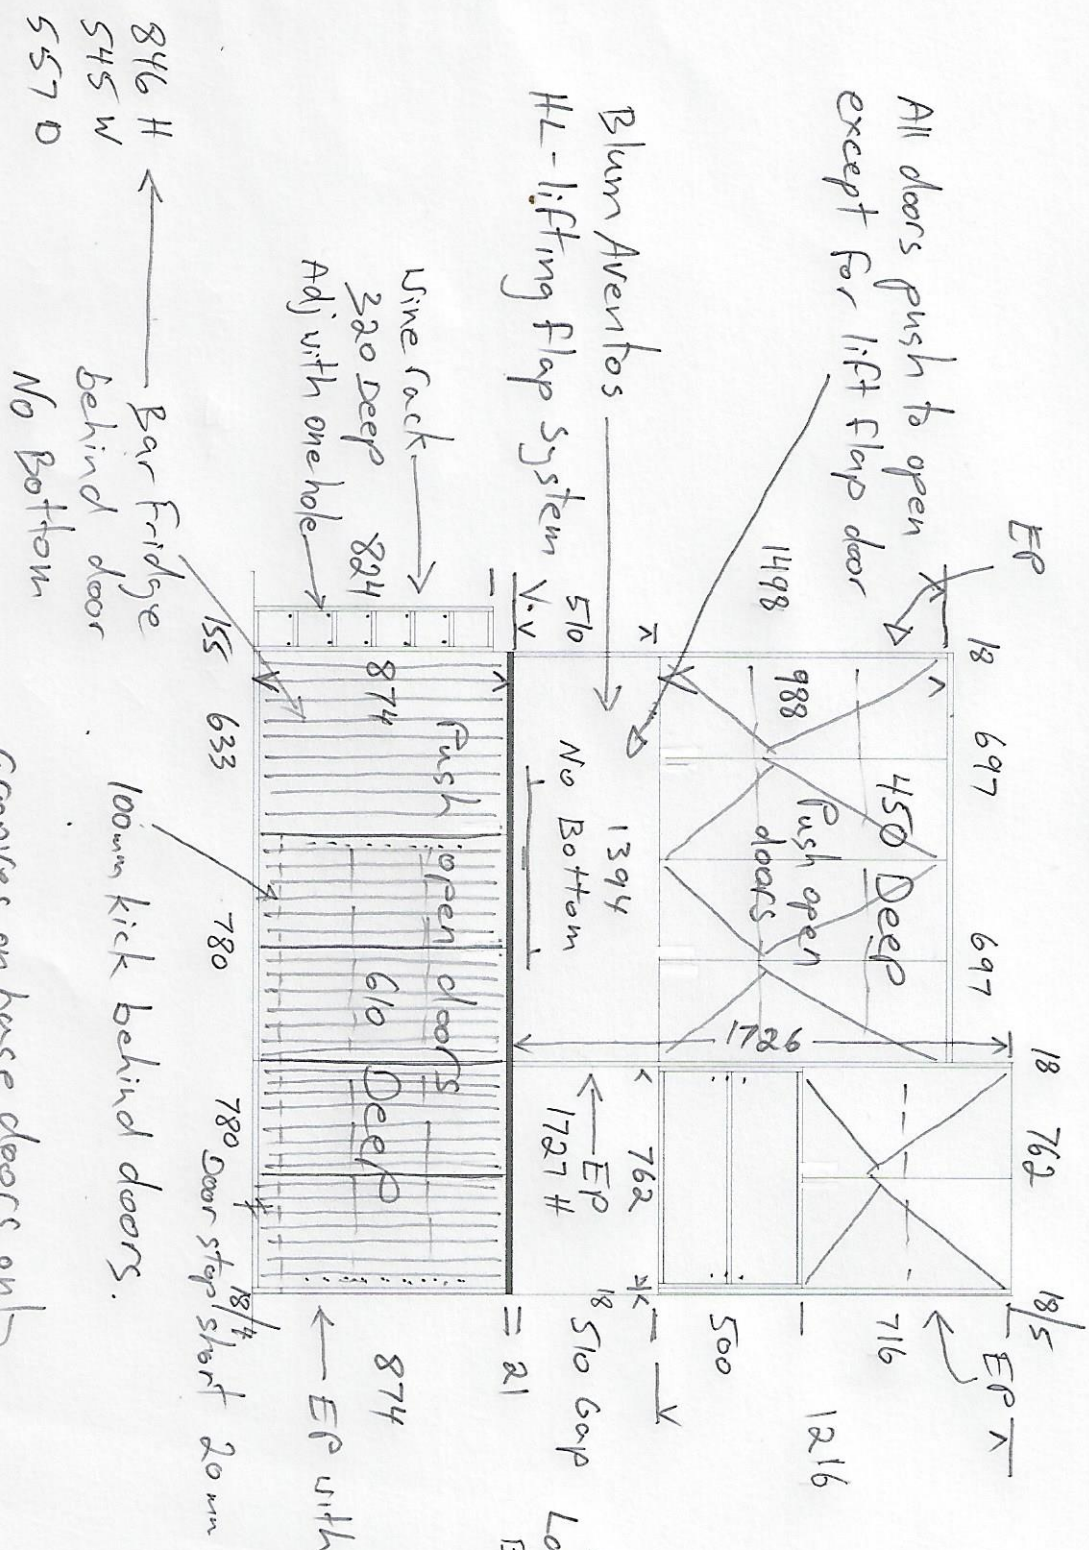 EP
18
697
697
18
762
18/5
EP
All doors push to open
except for lift flap door
1498
988
450 Deep
Push open
doors
1726
716
1216
500
Blum Aventos
HL-lifting flap system
510
1394
No Bottom
762
EP
1727 H
18
510 Gap
= 21
Wine rack
320 Deep
Adj with one hole
824
874
Push open doors
610 Deep
874
EP with
155
633
780
780
18/4
Door stop/short 20mm
846 H
545 W
557 D
Bar Fridge
behind door
No Bottom
100mm kick behind doors.
Grooves on base doors only